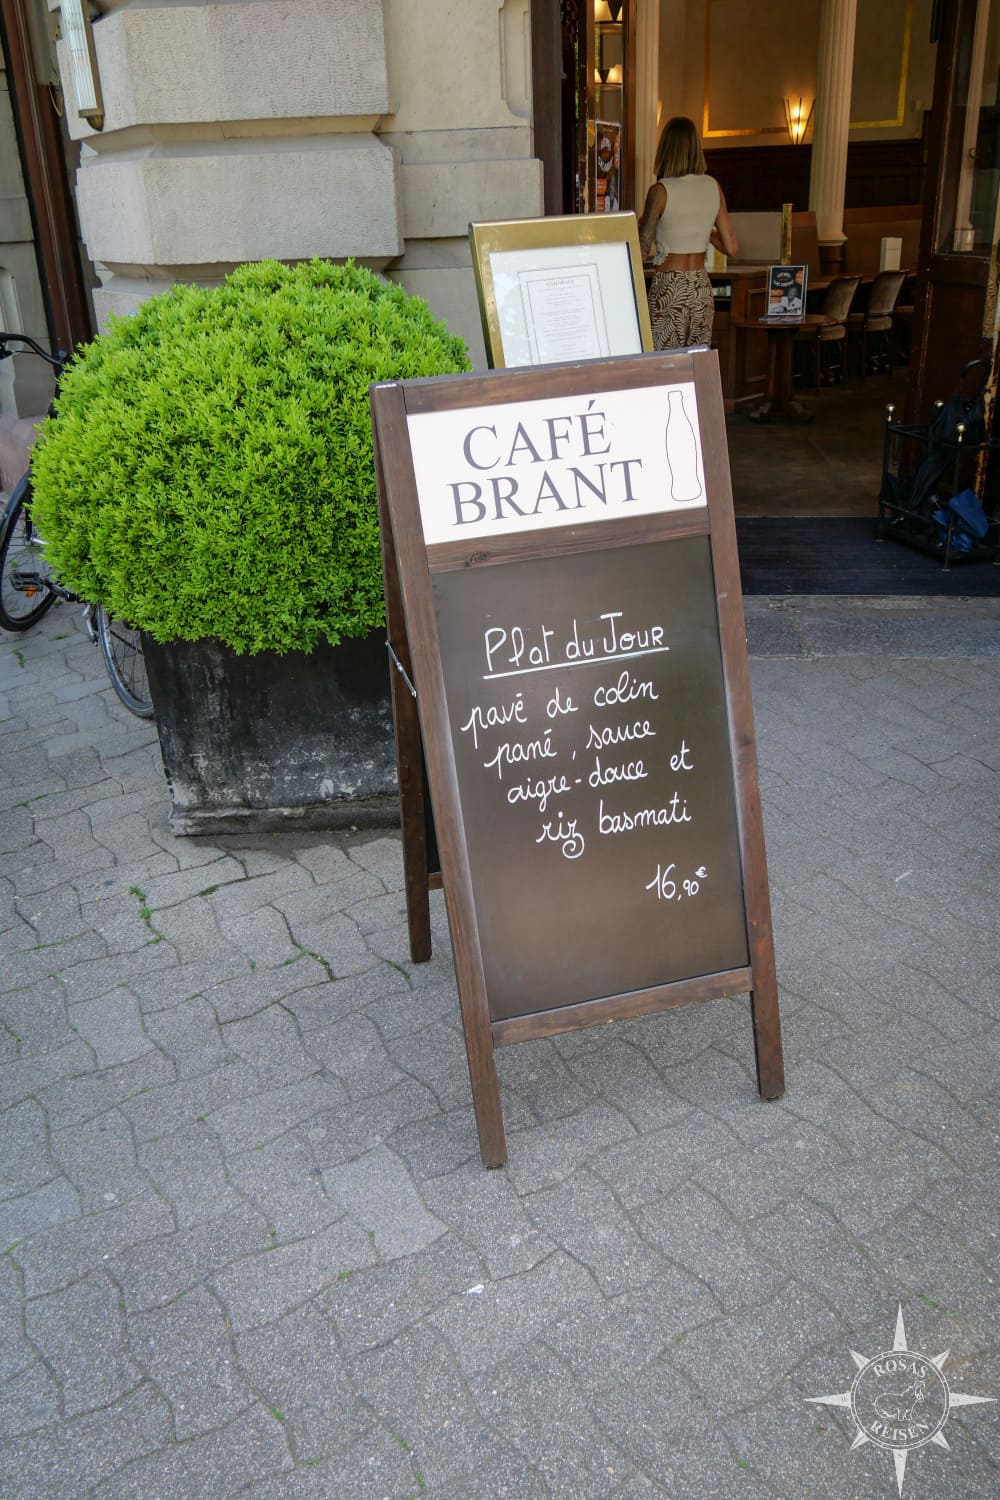 CAFÉ BRANT
CAFÉ
BRANT
Plat du Jour
pavé de colin
pané, sauce
aigre-douce et
riz basmati
16,90€
ROSAS
REISEN